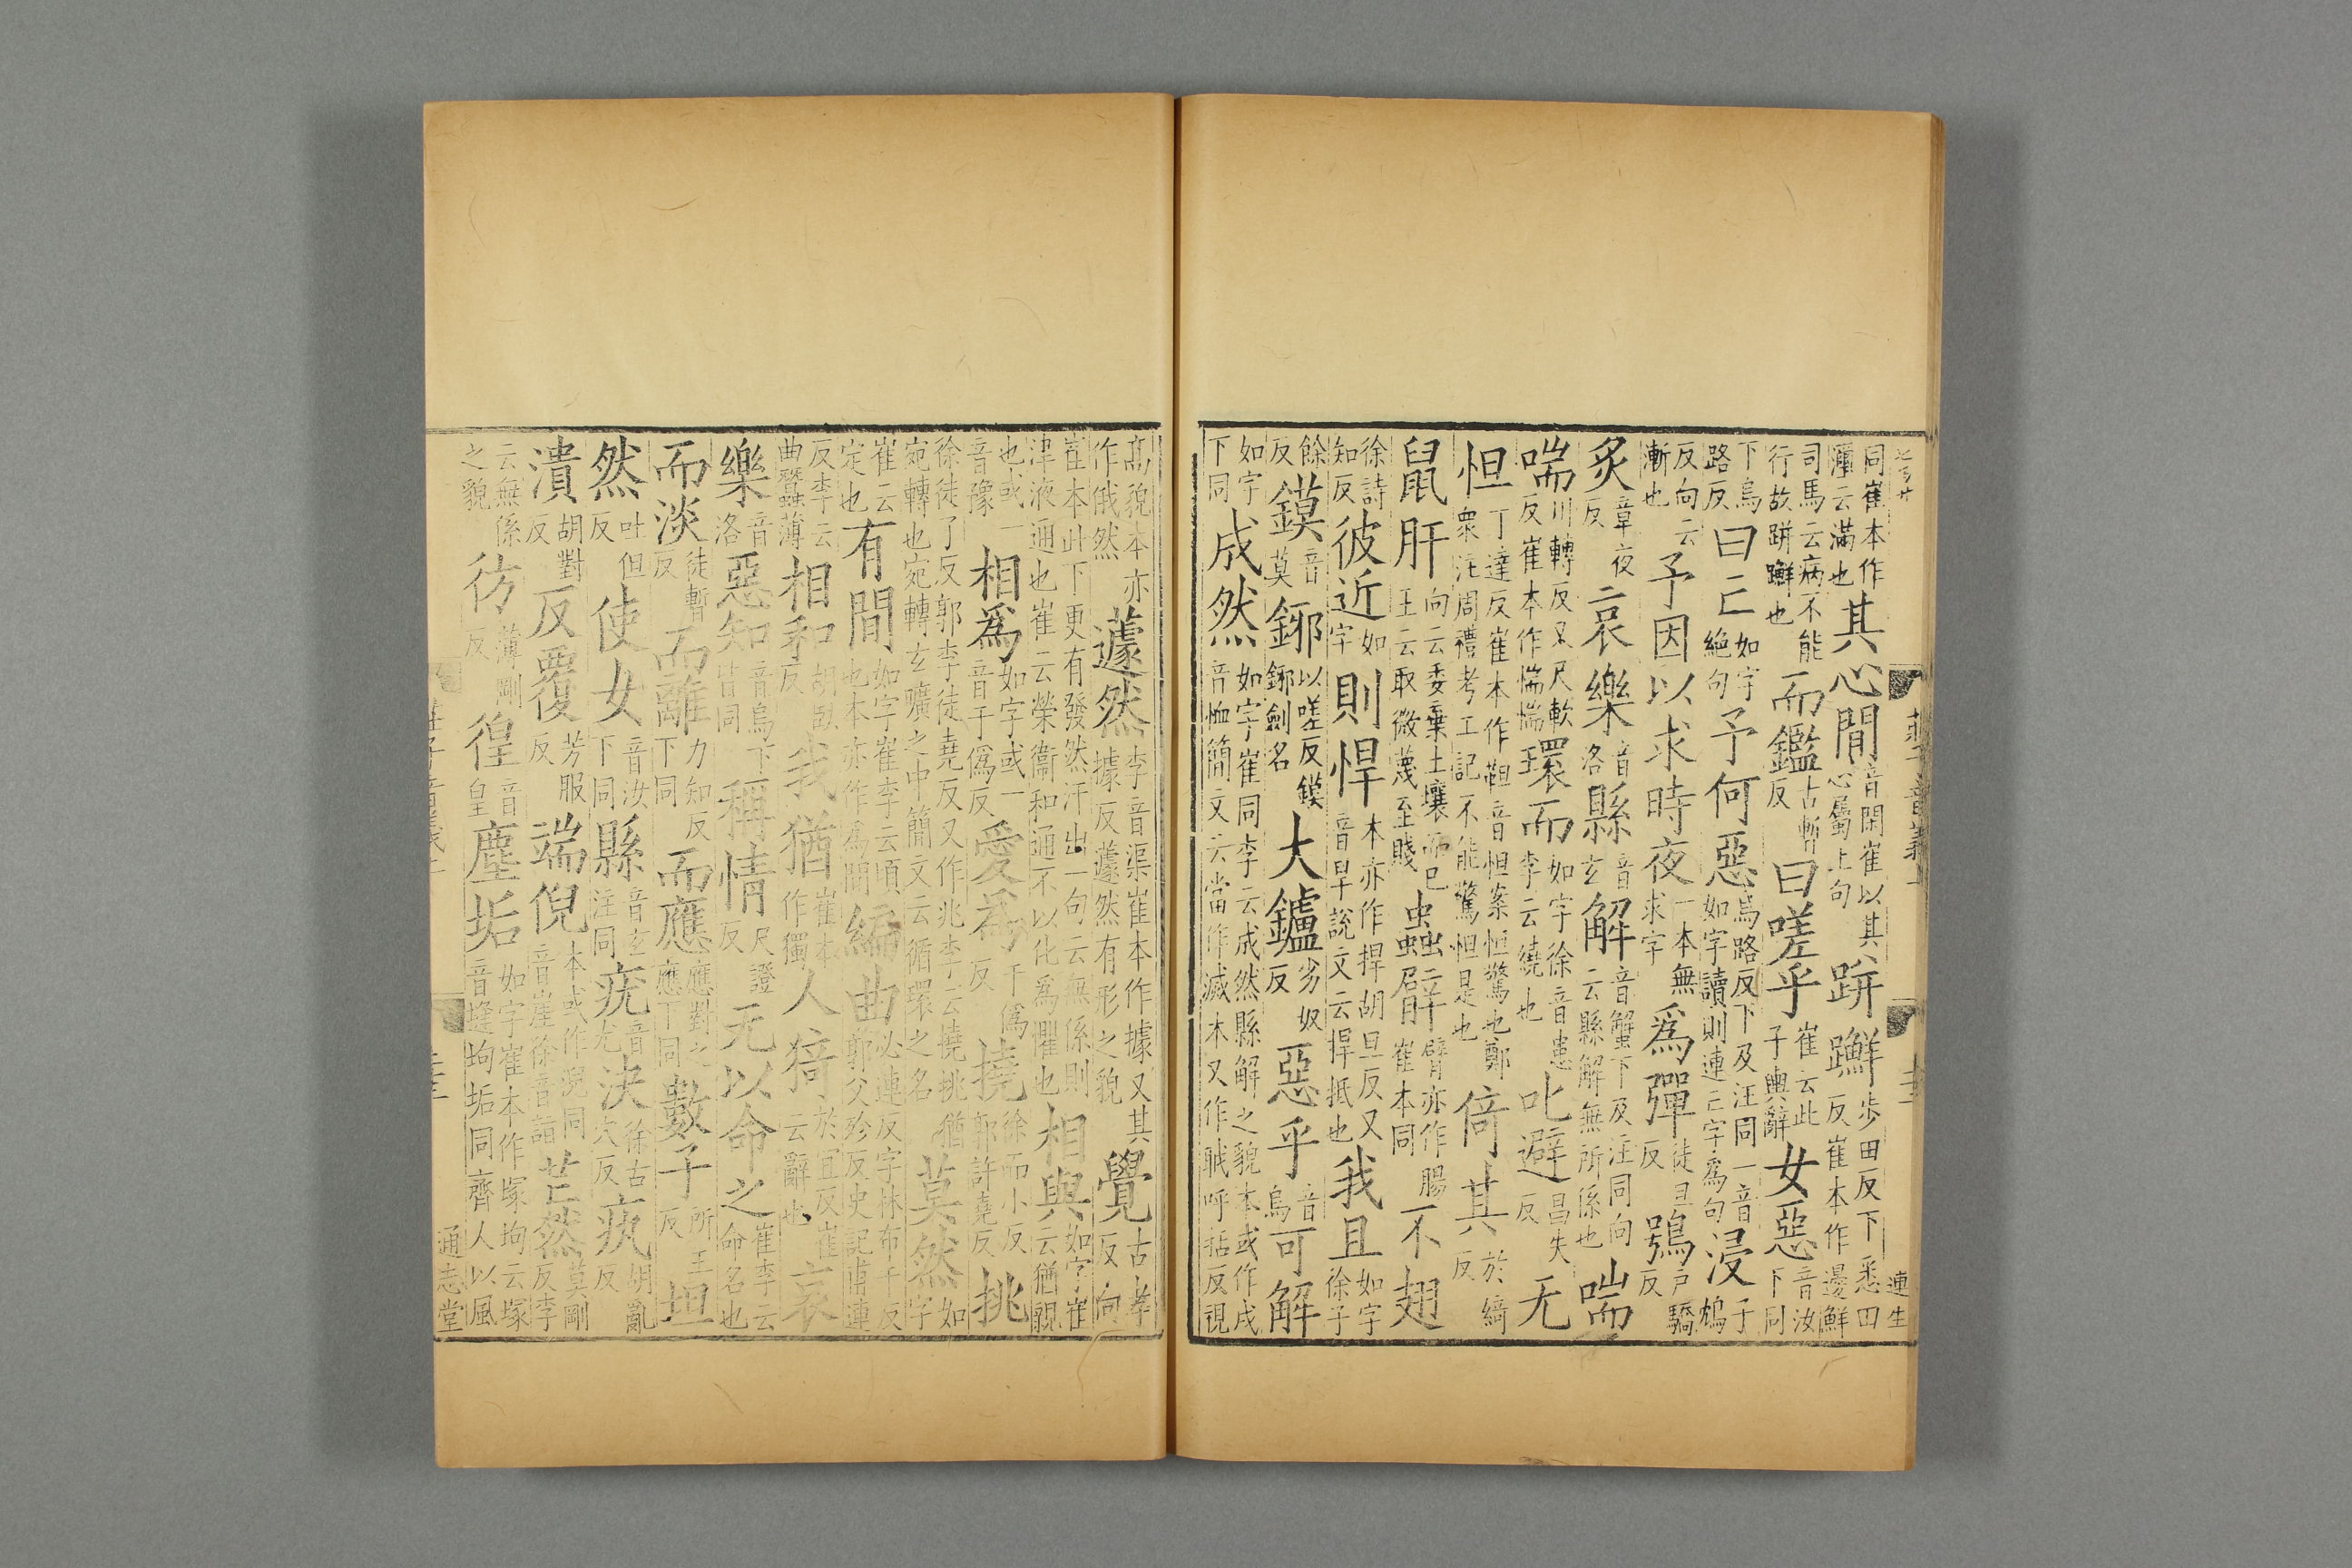 同崔本作𤄬云滿也其心閒音閑崔以其心屬上句跰𨇤步田反下悉田反崔本作邊鮮
司馬云病不能行故跰𨇤也而鑑古暫反曰嗟乎崔云此子輿辭女惡音汝下同
下烏路反曰亡如字絕句予何惡烏路反下及注同一音如字讀則連亡字爲句浸子鴆
反向云漸也予因以求時夜一本無求字爲彈徒旦反鴞戶驕反
炙章夜反哀樂音洛縣音玄解音蟹下及注同向云縣解無所係也喘
喘川轉反又尺軟反崔本作惴惴環而如字徐音患李云繞也叱避昌失反无
怛丁達反崔本作靼音怛案怛驚也鄭衆注周禮考工記不能驚怛是也倚其於綺反
鼠肝向云委棄土壤而已王云取微蔑至賤蟲臂臂亦作腸崔本同不翅
徐詩知反彼近如字則悍本亦作捍胡旦反又音旱說文云捍抵也我且如字徐子
餘反鏌音莫鋣以嗟反鏌鋣劍名大鑪劣奴反惡乎音烏可解
如字下同成然如字崔同李云成然縣解之貌本或作戌音恤簡文云當作滅本又作眓呼括反視
高貌本亦作俄然蘧然李音渠崔本作據又其據反蘧然有形之貌覺古孝反向
崔本此下更有發然汗出一句云無係則津液通也崔云榮衞和通不以化爲懼也相與如字崔云猶親
也或一音豫相爲如字或一音于僞反愛爲于僞反撓徐而小反郭許堯反挑
徐徒了反郭李徒堯反又作兆李云撓挑猶宛轉也宛轉玄曠之中簡文云循環之名莫然如字
崔云定也有間如字崔李云頃也本亦作爲間編曲必連反字林布千反郭父殄反史記甫連
反李云曲蠶薄相和胡臥反我猶崔本作獨人猗於宜反崔云辭也哀
樂音洛惡知音烏下皆同稱情尺證反无以命之崔李云命名也
而淡徒暫反而離力知反下同而應應對之應下同數子所主反坦
然吐但反使女音汝下同縣音玄注同疣音尤決徐古穴反疾胡亂反
潰胡對反反覆芳服反端倪本或作淣同音崖徐音詣芒然莫剛反李
云無係之貌彷薄剛反徨音皇塵垢如字崔本作塚坸云塚音塳坸垢同齊人以風
通志堂
連生